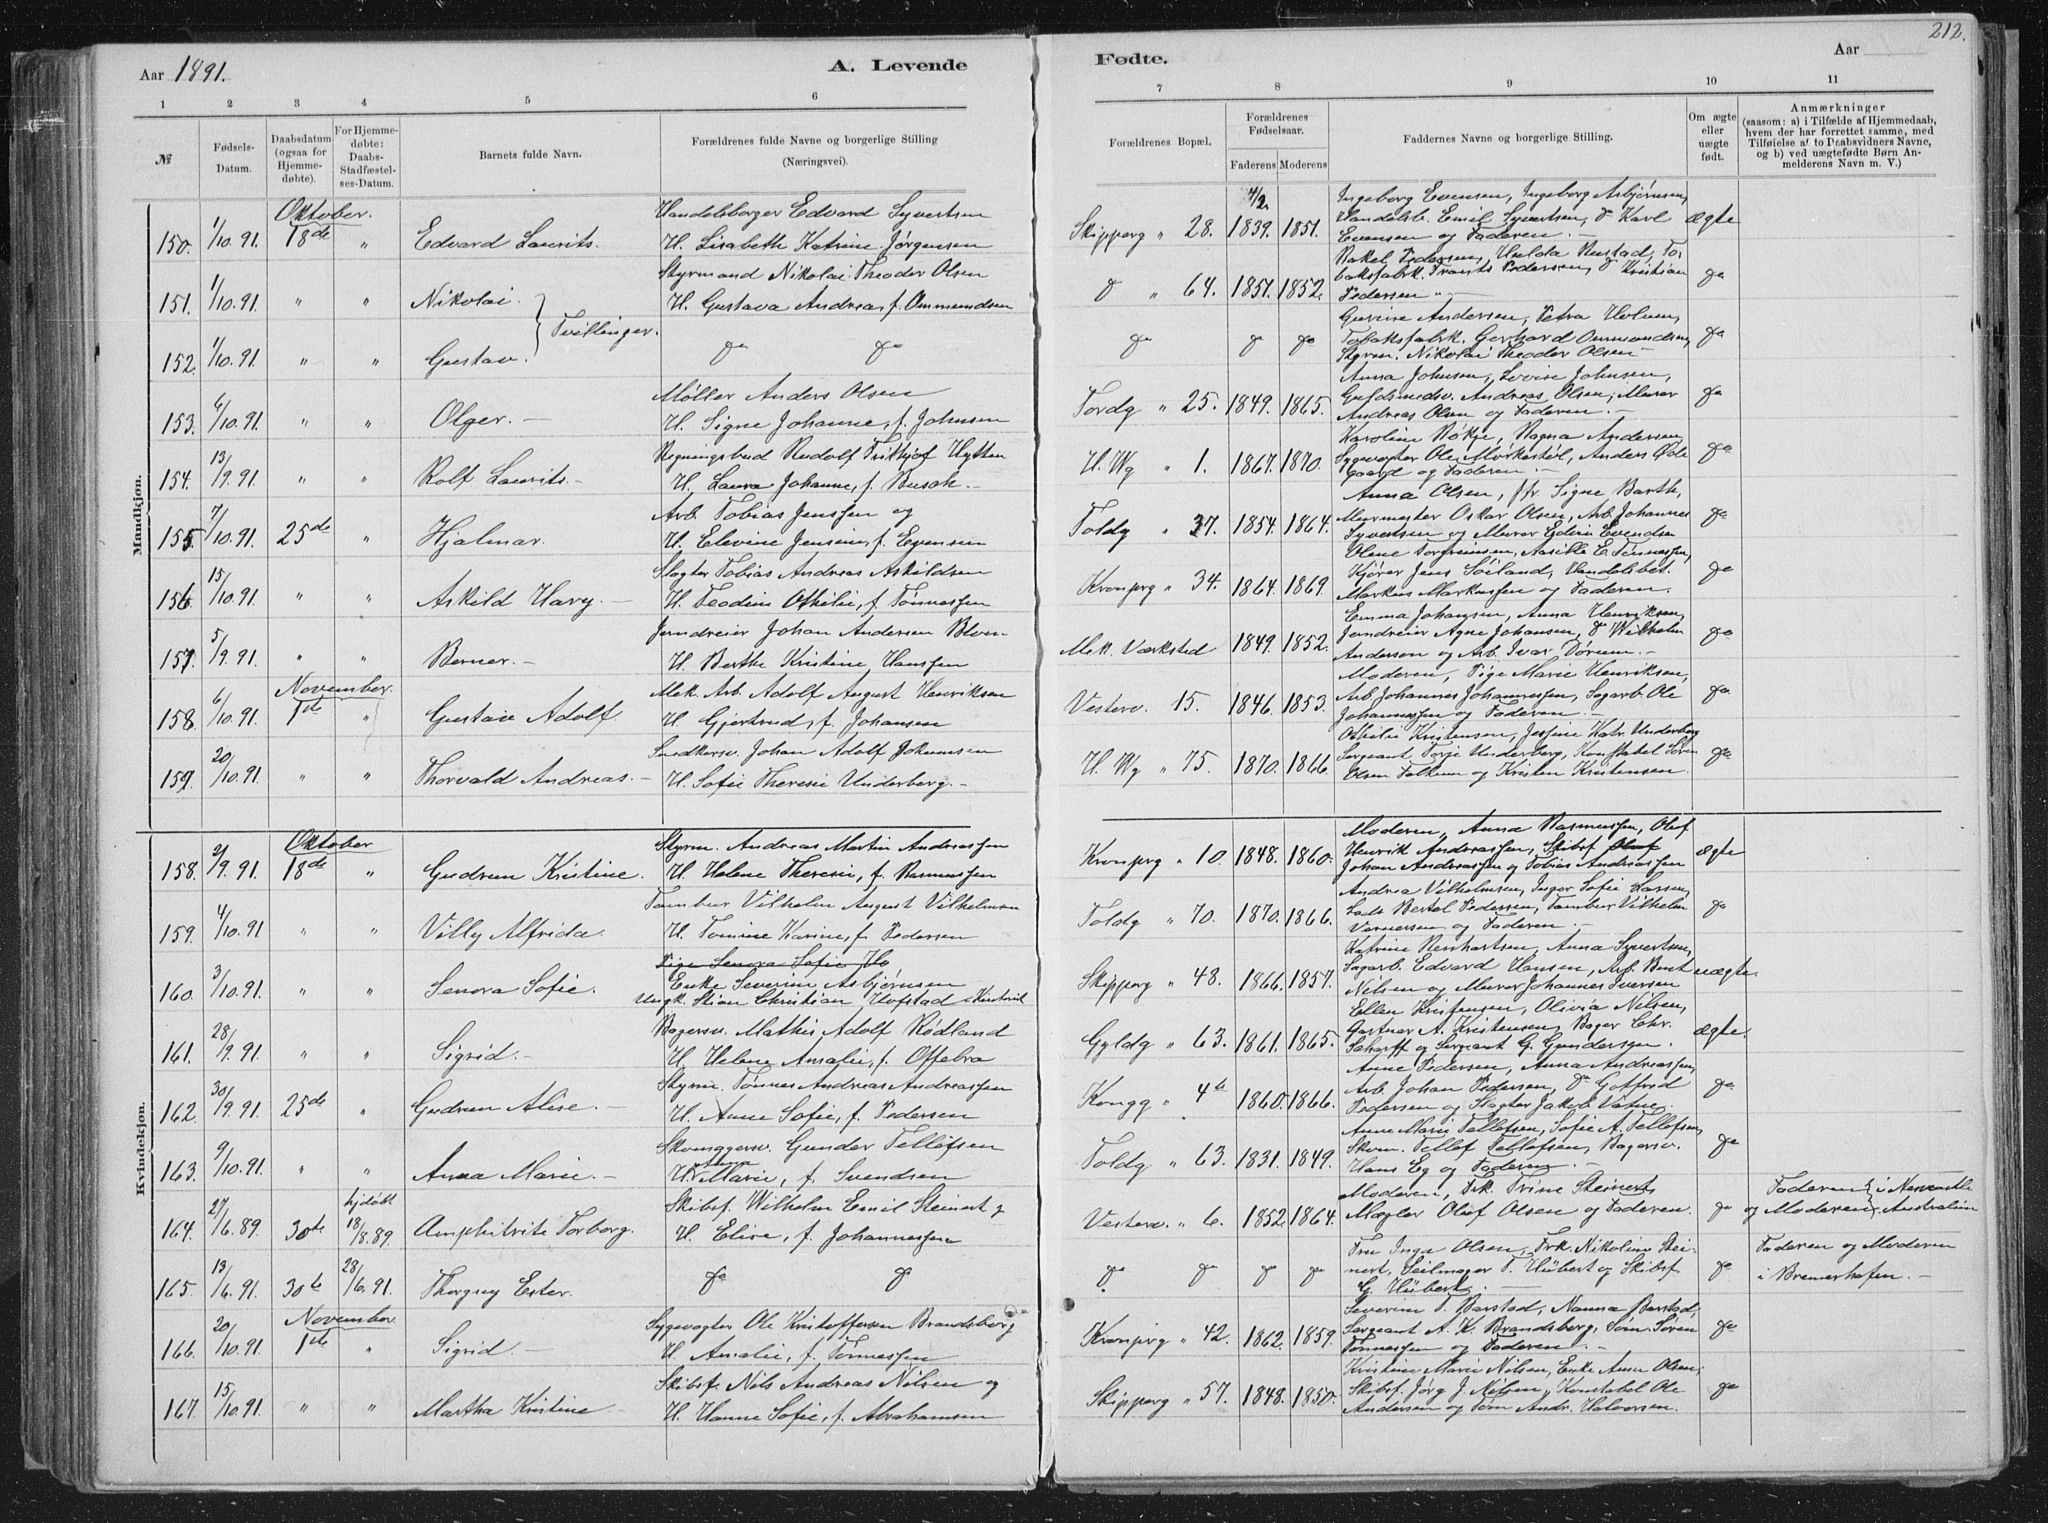 212.
Aar 1891.
A. Levende
Fødte.
Aar
1 2 3 4 5 6 7 8 9 10 11
№
Fødsels-Datum.
Daabsdatum (ogsaa for Hjemme-døbte).
For Hjemme-døbte: Daabs-Stadfæstel-ses-Datum.
Barnets fulde Navn.
Forældrenes fulde Navne og borgerlige Stilling (Næringsvei).
Forældrenes Bopæl.
Forældrenes Fødselsaar.
Faderens Moderens
Faddernes Navne og borgerlige Stilling.
Om ægte eller uægte født.
Anmærkninger (saasom: a) i Tilfælde af Hjemmedaab, hvem der har forrettet samme, med Tilføielse af to Daabsvidners Navne, og b) ved uægtefødte Børn An-melderens Navn m. V.)
Mandkjøn.
Oktober.
150. 1/10.91. 18de " Edvard Laurits. Handelsborger Edvard Syvertsen
H. Lisabeth Katrine Jørgensen
Skipperg " 28. 4/2 1839. 1851. Ingeborg Evensen, Ingeborg Asbjørnsen,
Handelsb. Emil Syvertsen, do Karl
Evensen og Faderen. — ægte
151. 1/10.91. " " Nikolai. } Tvillinger. Styrmand Nikolai Theodor Olsen
H. Gustava Andrea, f. Ommundsen
do " 64. 1851. 1852. Rakel Pedersen, Hulda Rustad, To-
baksfabrk. Frants Pedersen, do Kristian
Pedersen. — do
152. 1/10.91. " " Gustav. do do
do do do Gurine Andersen, Petra Holum,
Tobaksfabrk. Gerhard Ommundsen,
Styrm. Nikolai Theodor Olsen do
153. 6/10.91. " " Olger. — Møller Anders Olsen
H. Signe Johanne, f. Johnsen
Tordg " 25. 1849. 1865. Anna Johnsen, Lovise Johnsen,
Guldsmedsv. Andreas Olsen, Murer
Andreas Olsen og Faderen. — do
154. 13/9.91. " " Rolf Laurits. Regningsbud Rudolf Frithjof Hytten
H. Laura Johanne, f. Busch. —
H. Wg " 1. 1867. 1870. Karoline Røkje, Ragna Andersen,
Sygevogter Ole Mørkestøl, Anders Øde
gaard og Faderen. — do
155. 7/10.91. 25de " Hjalmar. Arb. Tobias Jenssen og
H. Elevine Jensen, f. Evensen
Toldg " 37. 1854. 1864. Anna Olsen, Signe Barth,
Murmester Oskar Olsen, Arb. Johannes
Syvertsen og Murer Edvin Evendsen do
156. 15/10.91. " " Askild Harry. — Slagter Tobias Andreas Askildsen
H. Teodine Othilie, f. Tønnessen
Kronprg " 34. 1864. 1869. Olene Torgrimsen, Aasille E. Tønnessen,
Kjører Jens Søiland, Handelsbet.
Markus Markussen og Faderen. do
157. 5/9.91. " " Berner. — Jerndreier Johan Andersen Blom
H. Berthe Kristine Hanssen
Mek. Værksted 1849. 1852. Emma Johansen, Anna Henriksen,
Jerndreier Agne Johansen, do Wilhelm
Anderson og Arb. Ivar Dørum. — do
November.
158. 6/10.91. 1ste " Gustav Adolf. Mek. Arb. Adolf August Henriksen
H. Gjertrud, f. Johansen
Vesterv. 15. 1846. 1853. Moderen, Pige Marie Henriksen,
Arb. Johannes Johannessen, Sagarb. Ole
Johannessen og Faderen — do
159. 20/10.91. " " Thorvald Andreas. — Snedkersv. Johan Adolf Jokumsen
H. Sofie Therese Underberg. —
H. Wg " 75. 1870. 1866. Othelie Kristensen, Jessine Katr. Underberg
Sergeant Torje Underberg, Konstabel Søren
Olsen Falkum og Kristen Kristensen. do
Kvindekjøn.
Oktober
158. 2/9.91. 18de " Gudrun Kristine. Styrm. Andreas Martin Andreassen
H. Helene Therese, f. Rasmussen
Kronprg " 10. 1848. 1860. Moderen, Anna Rasmussen, Olof
Henrik Andreassen, Skibsf. Olof
Johan Andreassen og Tobias Andreassen ægte
159. 4/10.91 " " Villy Alfrida. Tambur Vilhelm August Vilhelmsen
H. Tomine Karine, f. Pedersen
Toldg " 70. 1870. 1866. Andrea Vilhelmsen, Inger Sofie Larsen,
Lods Bertel Pedersen, Tambur Vilhelm
Varnersen og Faderen — do
160. 3/10.91. " " Senora Sofie. Pige Senora Sofie Ho
Enke Severine Asbjørnsen
Ungk. Stian Christian Hofstad
Skipperg " 48. 1866. 1857. Katrine Renhartsen, Anna Syvertsen,
Sagarb. Edvard Hansen, Arb. Bent
Nilsen og Murer Johannes Iversen uægte.
161. 28/9.91. " " Sigrid. — Bagersv. Mathis Adolf Rødland
H. Helene Amalie, f. Oftebro
Gyldg " 63. 1861. 1865. Ellen Kristensen, Olivia Nilsen,
Gartner A. Kristensen, Bager Chr.
Scharff og Sergeant G. Gundersen. ægte.
162. 30/9.91. 25de " Gudrun Alise. — Styrm. Tønnes Andreas Andreassen
H. Anne Sofie, f. Pedersen
Kongg " 4b 1860. 1866. Anne Pedersen, Anna Andreassen,
Arb. Johan Pedersen, do Gotfrid
Pedersen og Slagter Jakob Vatne. do
163. 9/10.91. " " Anna Marie. — Skomagersv. Gunder Tellefsen
H. Anna Marie, f. Svendsen
Toldg " 63. 1831. 1849. Anne Marie Tellefsen, Sofie A. Tellefsen,
Skom. Tellef Tellefsen, Bagersv.
Hans Eg og Faderen. — do
164. 27/6.89. 30te hjdøbt 18/8.89. Amphitrite Torborg. Skibsf. Wilhelm Emil Steinert og
H. Elise, f. Johannessen
Vesterv. " 6. 1852. 1864. Moderen, Frk. Trine Steinerts
Mægler Olaf Olsen og Faderen. do Faderen } i Newcastle
og Moderen } Australien
165. 13/6.91. 30te 28/6.91. Thorguy Ester. do do
do do do do Fru Inga Olsen, Frk. Nikoline Stei-
nert, Seilmager T. Hübert og Skibsf.
G. Hübert. — do Faderen og Moderen
i Bremerhafen. —
November.
166. 20/10.91. 1ste " Sigrid. — Sygevogter Ole Kristoffersen Brandsborg
H. Amalie, f. Tønnessen
Kronprg " 42. 1862. 1859. Severine T. Barstad, Nanna Barstad,
Sergeant A. K. Brandsberg, Søm. Søren
Tønnessen og Faderen. — do
167. 15/10.91. " " Martha Kristine. — Skibsf. Nils Andreas Nilsen og
H. Hanne Sofie, f. Abrahamsen
Skipperg " 57. 1848. 1850. Kristine Marie Nilsen, Enke Anne Olsen,
Skibsf. Jørg. J. Nilsen, Konstabel Ole
Andersen og Tøm. Andr. Halvorsen. do